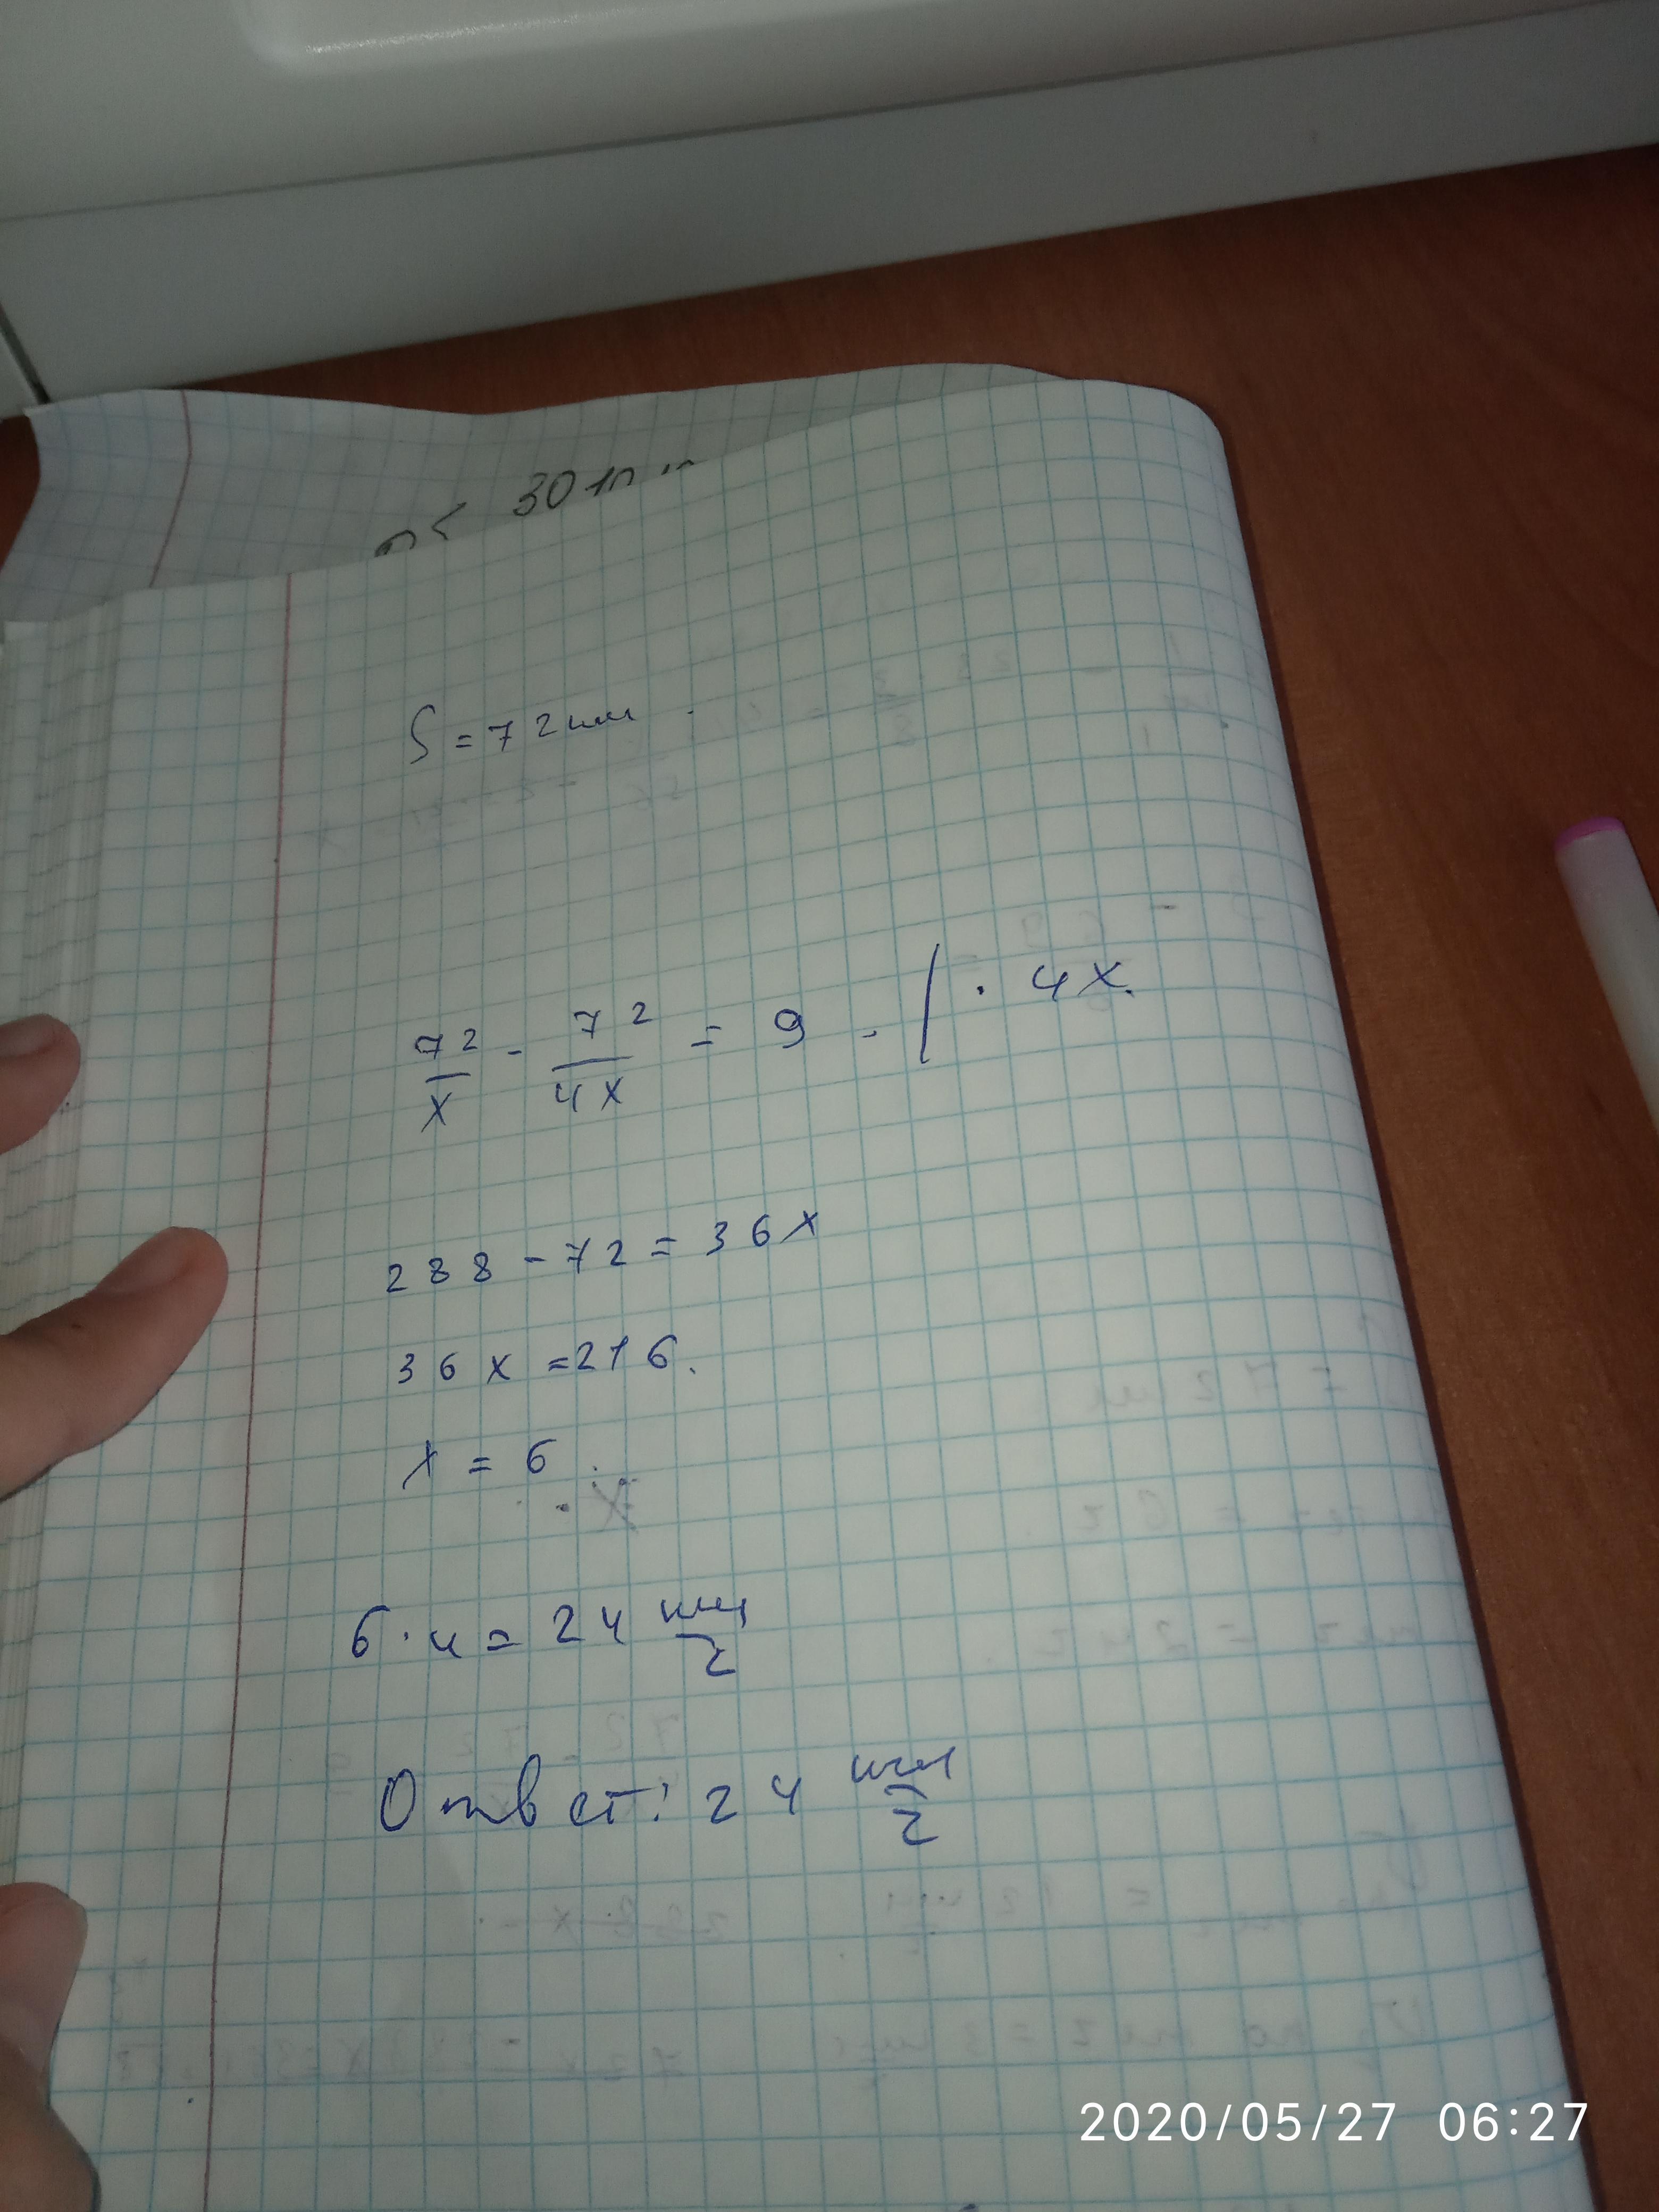 30
S = 72 км
72/x - 72/4x = 9 | · 4x.
288 - 72 = 36x
36x = 216.
x = 6
6 · 4 = 24 км/ч
Ответ: 24 км/ч
2020/05/27 06:27